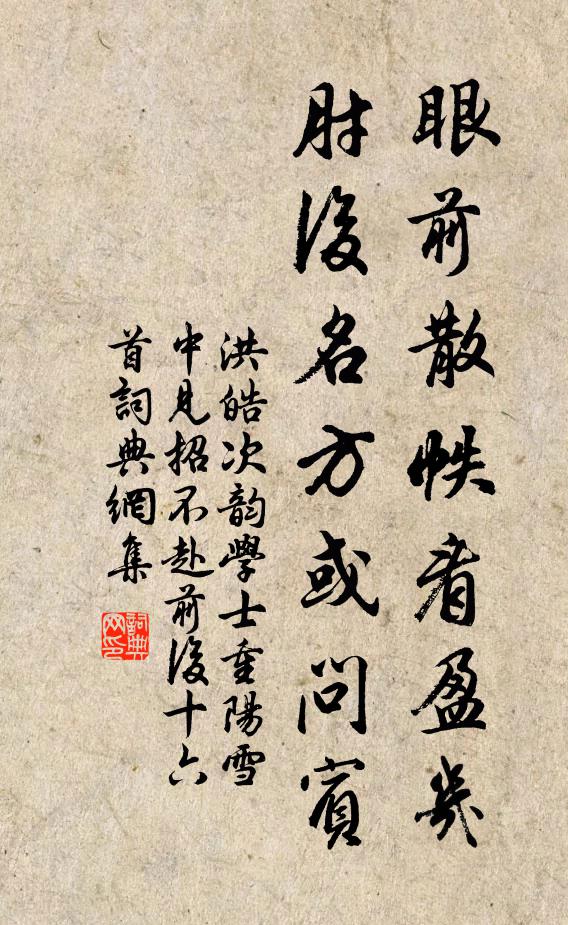 眼前散帙看盈幾
肘後名方或問賓
洪皓次韵學士重陽雪
中見招不赴前後十六
首詞典網集
詞典
网印